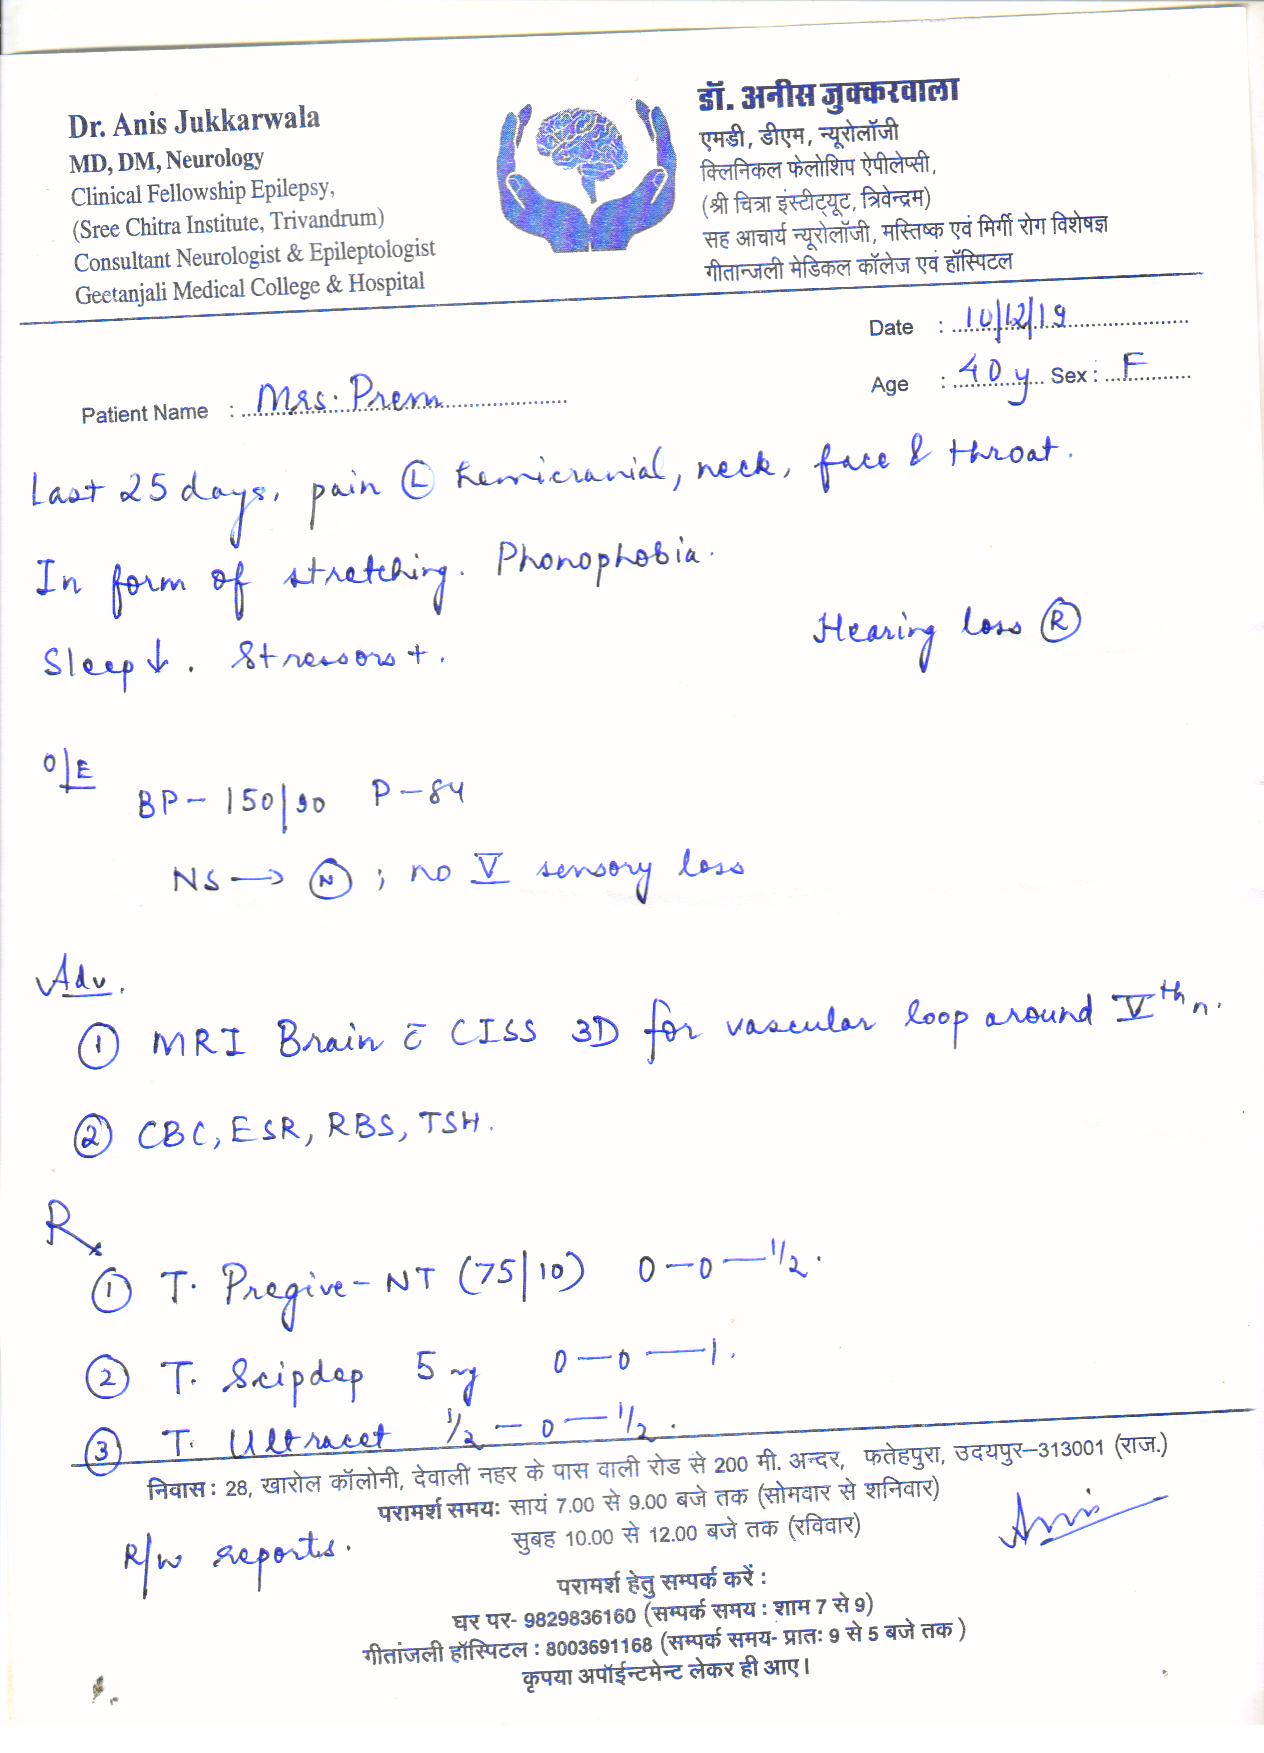 Dr. Anis Jukkarwala
MD, DM, Neurology
Clinical Fellowship Epilepsy,
(Sree Chitra Institute, Trivandrum)
Consultant Neurologist & Epileptologist
Geetanjali Medical College & Hospital
डॉ. अनीस जुक्करवाला
एमडी, डीएम, न्यूरोलॉजी
क्लिनिकल फेलोशिप ऐपीलेप्सी,
(श्री चित्रा इंस्टीट्यूट, त्रिवेन्द्रम)
सह आचार्य न्यूरोलॉजी, मस्तिष्क एवं मिर्गी रोग विशेषज्ञ
गीतान्जली मेडिकल कॉलेज एवं हॉस्पिटल
Date : 10/12/19
Age : 40 y Sex : F
Patient Name : Mrs. Prem
Last 25 days, pain Ⓛ hemicranial, neck, face & throat.
In form of stretching. Phonophobia.
Hearing loss Ⓡ
Sleep ↓. Stressors +.
O/E
BP - 150/90 P - 84
NS → Ⓝ ; no V sensory loss
Adv.
① MRI Brain c̄ CISS 3D for vascular loop around Vth n.
② CBC, ESR, RBS, TSH.
Rx
① T. Pregive - NT (75/10) 0 - 0 - 1/2.
② T. Scipdep 5 mg 0 - 0 - 1.
③ T. Ultracet 1/2 - 0 - 1/2.
निवास : 28, खारोल कॉलोनी, देवाली नहर के पास वाली रोड से 200 मी. अन्दर, फतेहपुरा, उदयपुर-313001 (राज.)
परामर्श समय: सायं 7.00 से 9.00 बजे तक (सोमवार से शनिवार)
सुबह 10.00 से 12.00 बजे तक (रविवार)
R/w reports.
Anis
परामर्श हेतु सम्पर्क करें :
घर पर- 9829836160 (सम्पर्क समय : शाम 7 से 9)
गीतांजली हॉस्पिटल : 8003691168 (सम्पर्क समय- प्रातः 9 से 5 बजे तक )
कृपया अपॉईन्टमेन्ट लेकर ही आए।